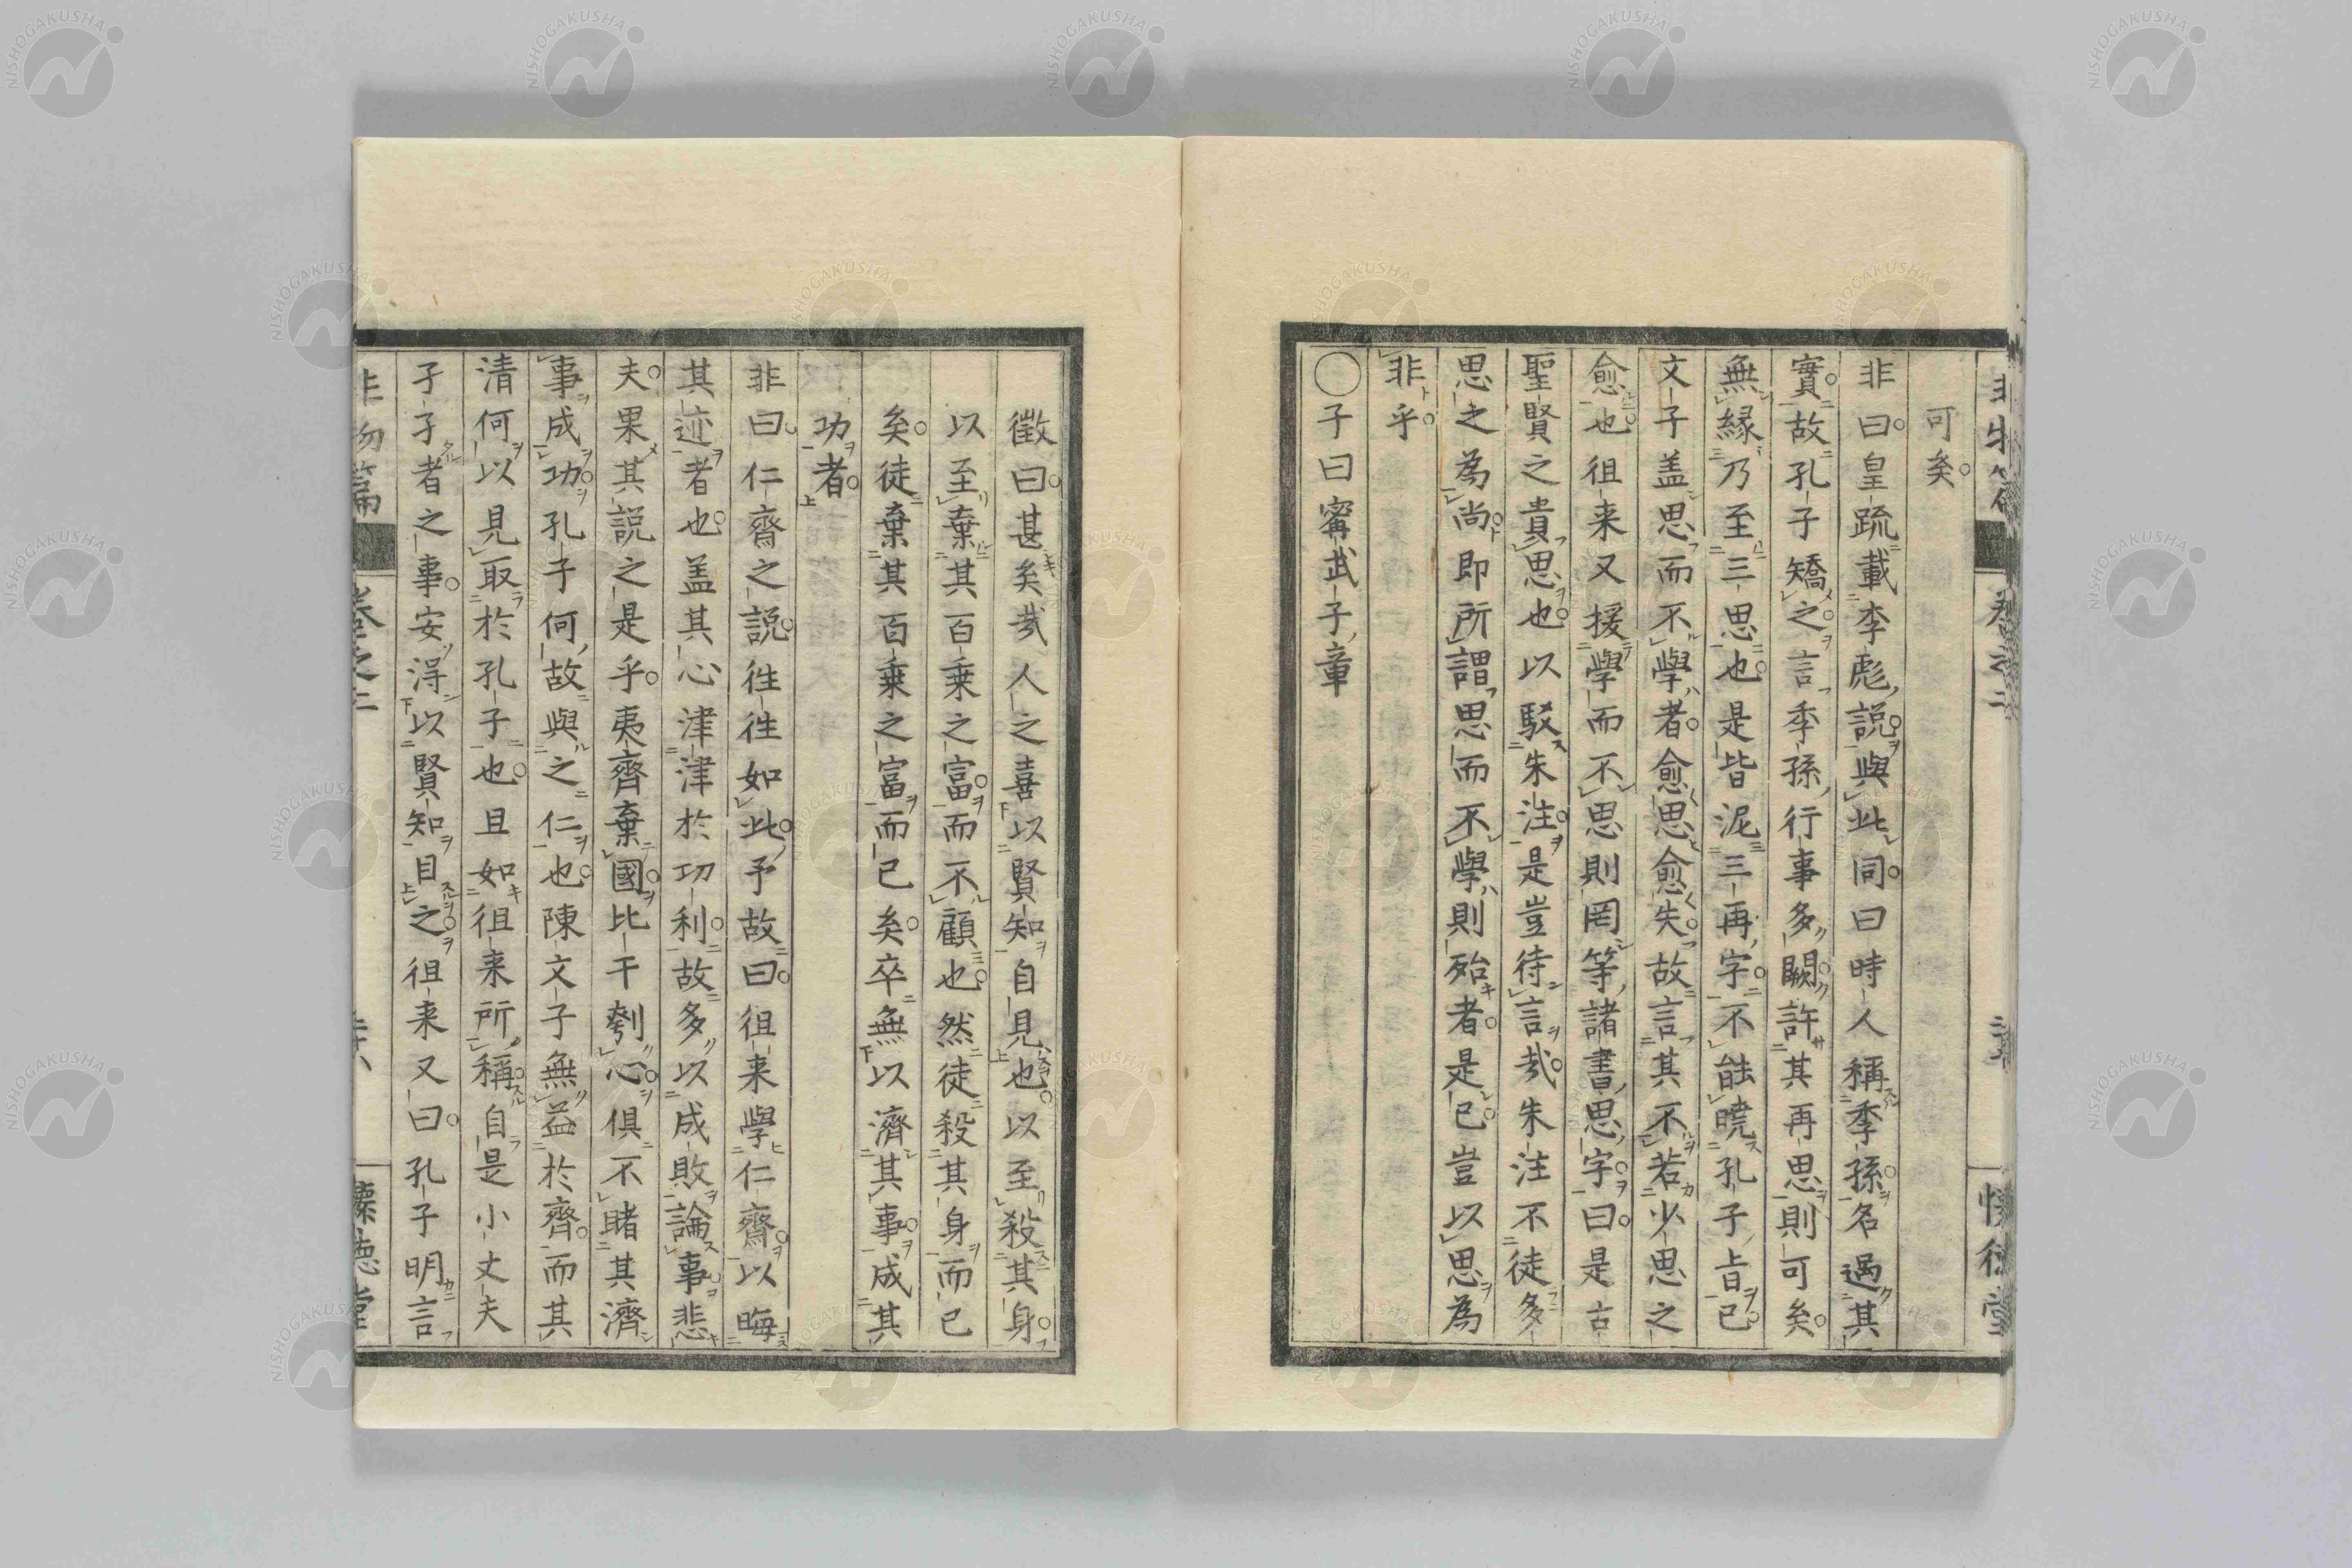 可矣
非曰皇疏載李彪說與此同曰時人稱季孫名過其
實故孔子矯之言季孫行事多闕許其再思則可矣
無緣乃至三思也是皆泥三再字不能曉孔子旨已
文子盖思而不學者愈思愈失故言其不若少思之
愈也徂来又援學而不思則罔等諸書思字曰是古
聖賢之貴思也以駁朱注是豈待言哉朱注不徒多
思之為尚即所謂思而不學則殆者是已豈以思為
非乎
○子曰甯武子章
徵曰甚矣哉人之喜以賢知自見也以至殺其身
以至棄其百乗之富而不顧也然徒殺其身而已
矣徒棄其百乗之富而已矣卒無以濟其事成其
功者
非曰仁齋之說徃徃如此予故曰徂来學仁齋以晦
其迹者也盖其心津津於功利故多以成敗論事悲
夫果其說之是乎夷齊棄國比干刳心俱不睹其濟
事成功孔子何故與之仁也陳文子無益於齊而其
清何以見取於孔子也且如徂来所稱自是小丈夫
孑孑者之事安得以賢知目之徂来又曰孔子明言
非物篇
卷之二
懷德堂
NISHOGAKUSHA